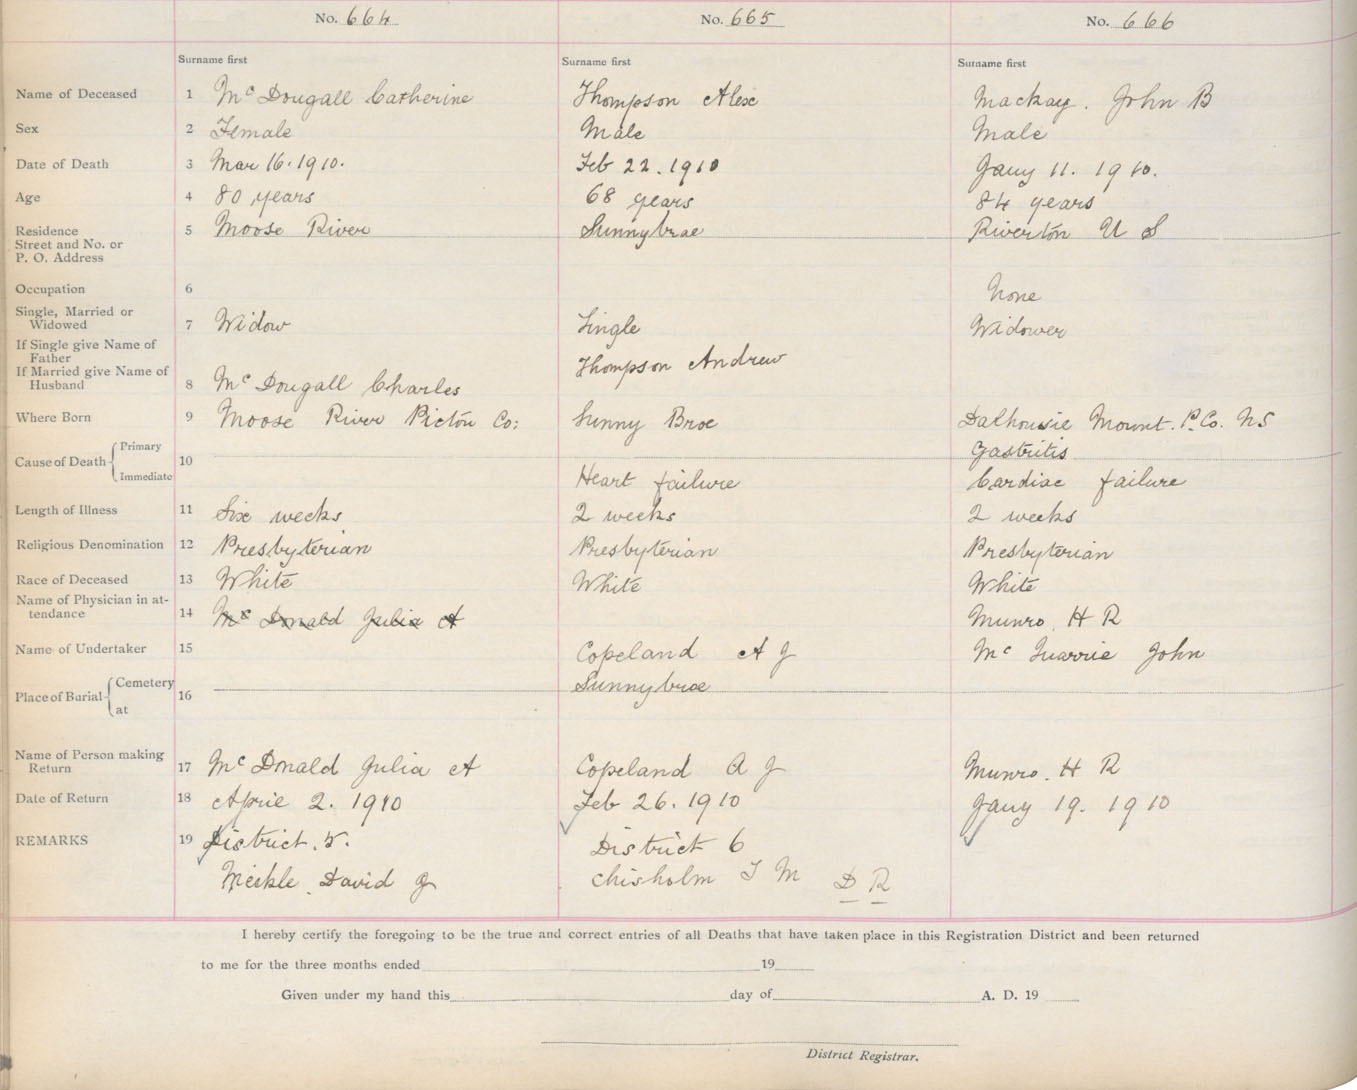 No. 664 No. 665 No. 666
Surname first Surname first Surname first
Name of Deceased 1 Mc Dougall Catherine Thompson Alex Mackay. John B
Sex 2 Female Male Male
Date of Death 3 Mar 16. 1910. Feb 22. 1910 Jany 11. 1910.
Age 4 80 years 68 years 84 years
Residence 5 Moose River Sunnybrae Riverton U S
Street and No. or
P. O. Address
Occupation 6 None
Single, Married or
Widowed 7 Widow Single Widower
If Single give Name of
Father Thompson Andrew
If Married give Name of
Husband 8 Mc Dougall Charles
Where Born 9 Moose River Pictou Co: Sunny Brae Dalhousie Mount. P. Co. N S
Cause of Death Primary 10 Gastritis
Immediate Heart failure Cardiac failure
Length of Illness 11 Six weeks 2 weeks 2 weeks
Religious Denomination 12 Presbyterian Presbyterian Presbyterian
Race of Deceased 13 White White White
Name of Physician in at-
tendance 14 Mc Donald Julia A Munro. H R
Name of Undertaker 15 Copeland A J Mc Quarrie John
Place of Burial Cemetery 16 Sunnybrae
at
Name of Person making
Return 17 Mc Donald Julia A Copeland A J Munro. H R
Date of Return 18 April 2. 1910 Feb 26. 1910 Jany 19. 1910
REMARKS 19 District. 5. District 6
Meikle David J Chisholm J M D R
I hereby certify the foregoing to be the true and correct entries of all Deaths that have taken place in this Registration District and been returned
to me for the three months ended 19
Given under my hand this day of A. D. 19
District Registrar.